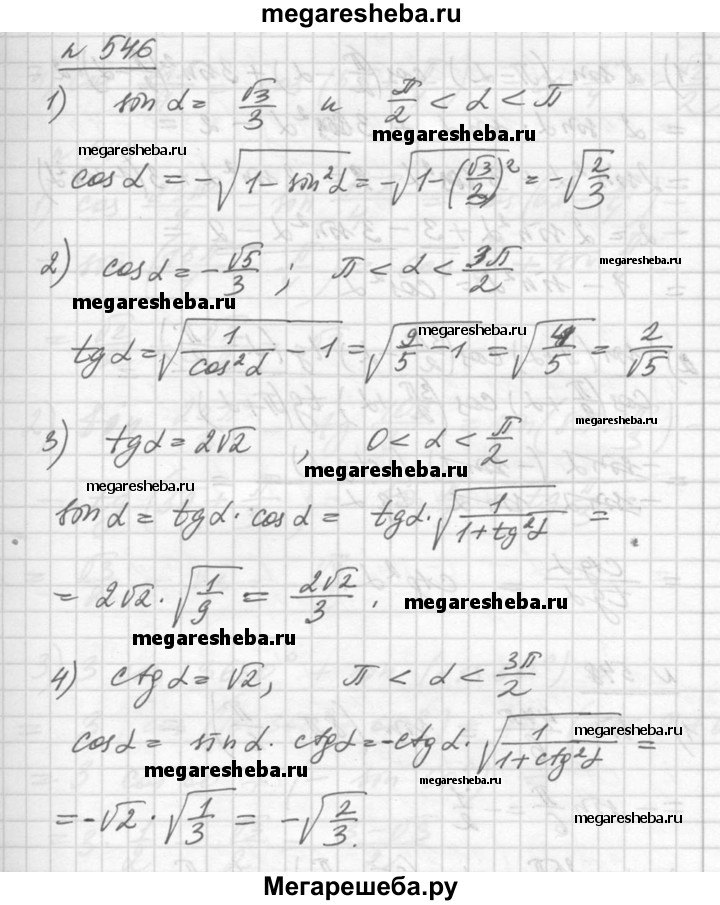 megaresheba.ru
№ 546
1) sin α = √3/3 и π/2 < α < π
megaresheba.ru
megaresheba.ru
cos α = -√(1 - sin²α) = -√(1 - (√3/3)²) = -√(2/3)
2) cos α = -√5/3 ; π < α < 3π/2
megaresheba.ru
megaresheba.ru
megaresheba.ru
tg α = √(1/cos²α - 1) = √(9/5 - 1) = √(4/5) = 2/√5
megaresheba.ru
3) tg α = 2√2 , 0 < α < π/2
megaresheba.ru
megaresheba.ru
sin α = tg α · cos α = tg α · √(1/(1+tg²α)) =
= 2√2 · √(1/9) = 2√2/3 .
megaresheba.ru
megaresheba.ru
4) ctg α = √2, π < α < 3π/2
megaresheba.ru
cos α = sin α · ctg α = -ctg α · √(1/(1+ctg²α)) =
megaresheba.ru
megaresheba.ru
= -√2 · √(1/3) = -√(2/3).
megaresheba.ru
Мегарешеба.ру